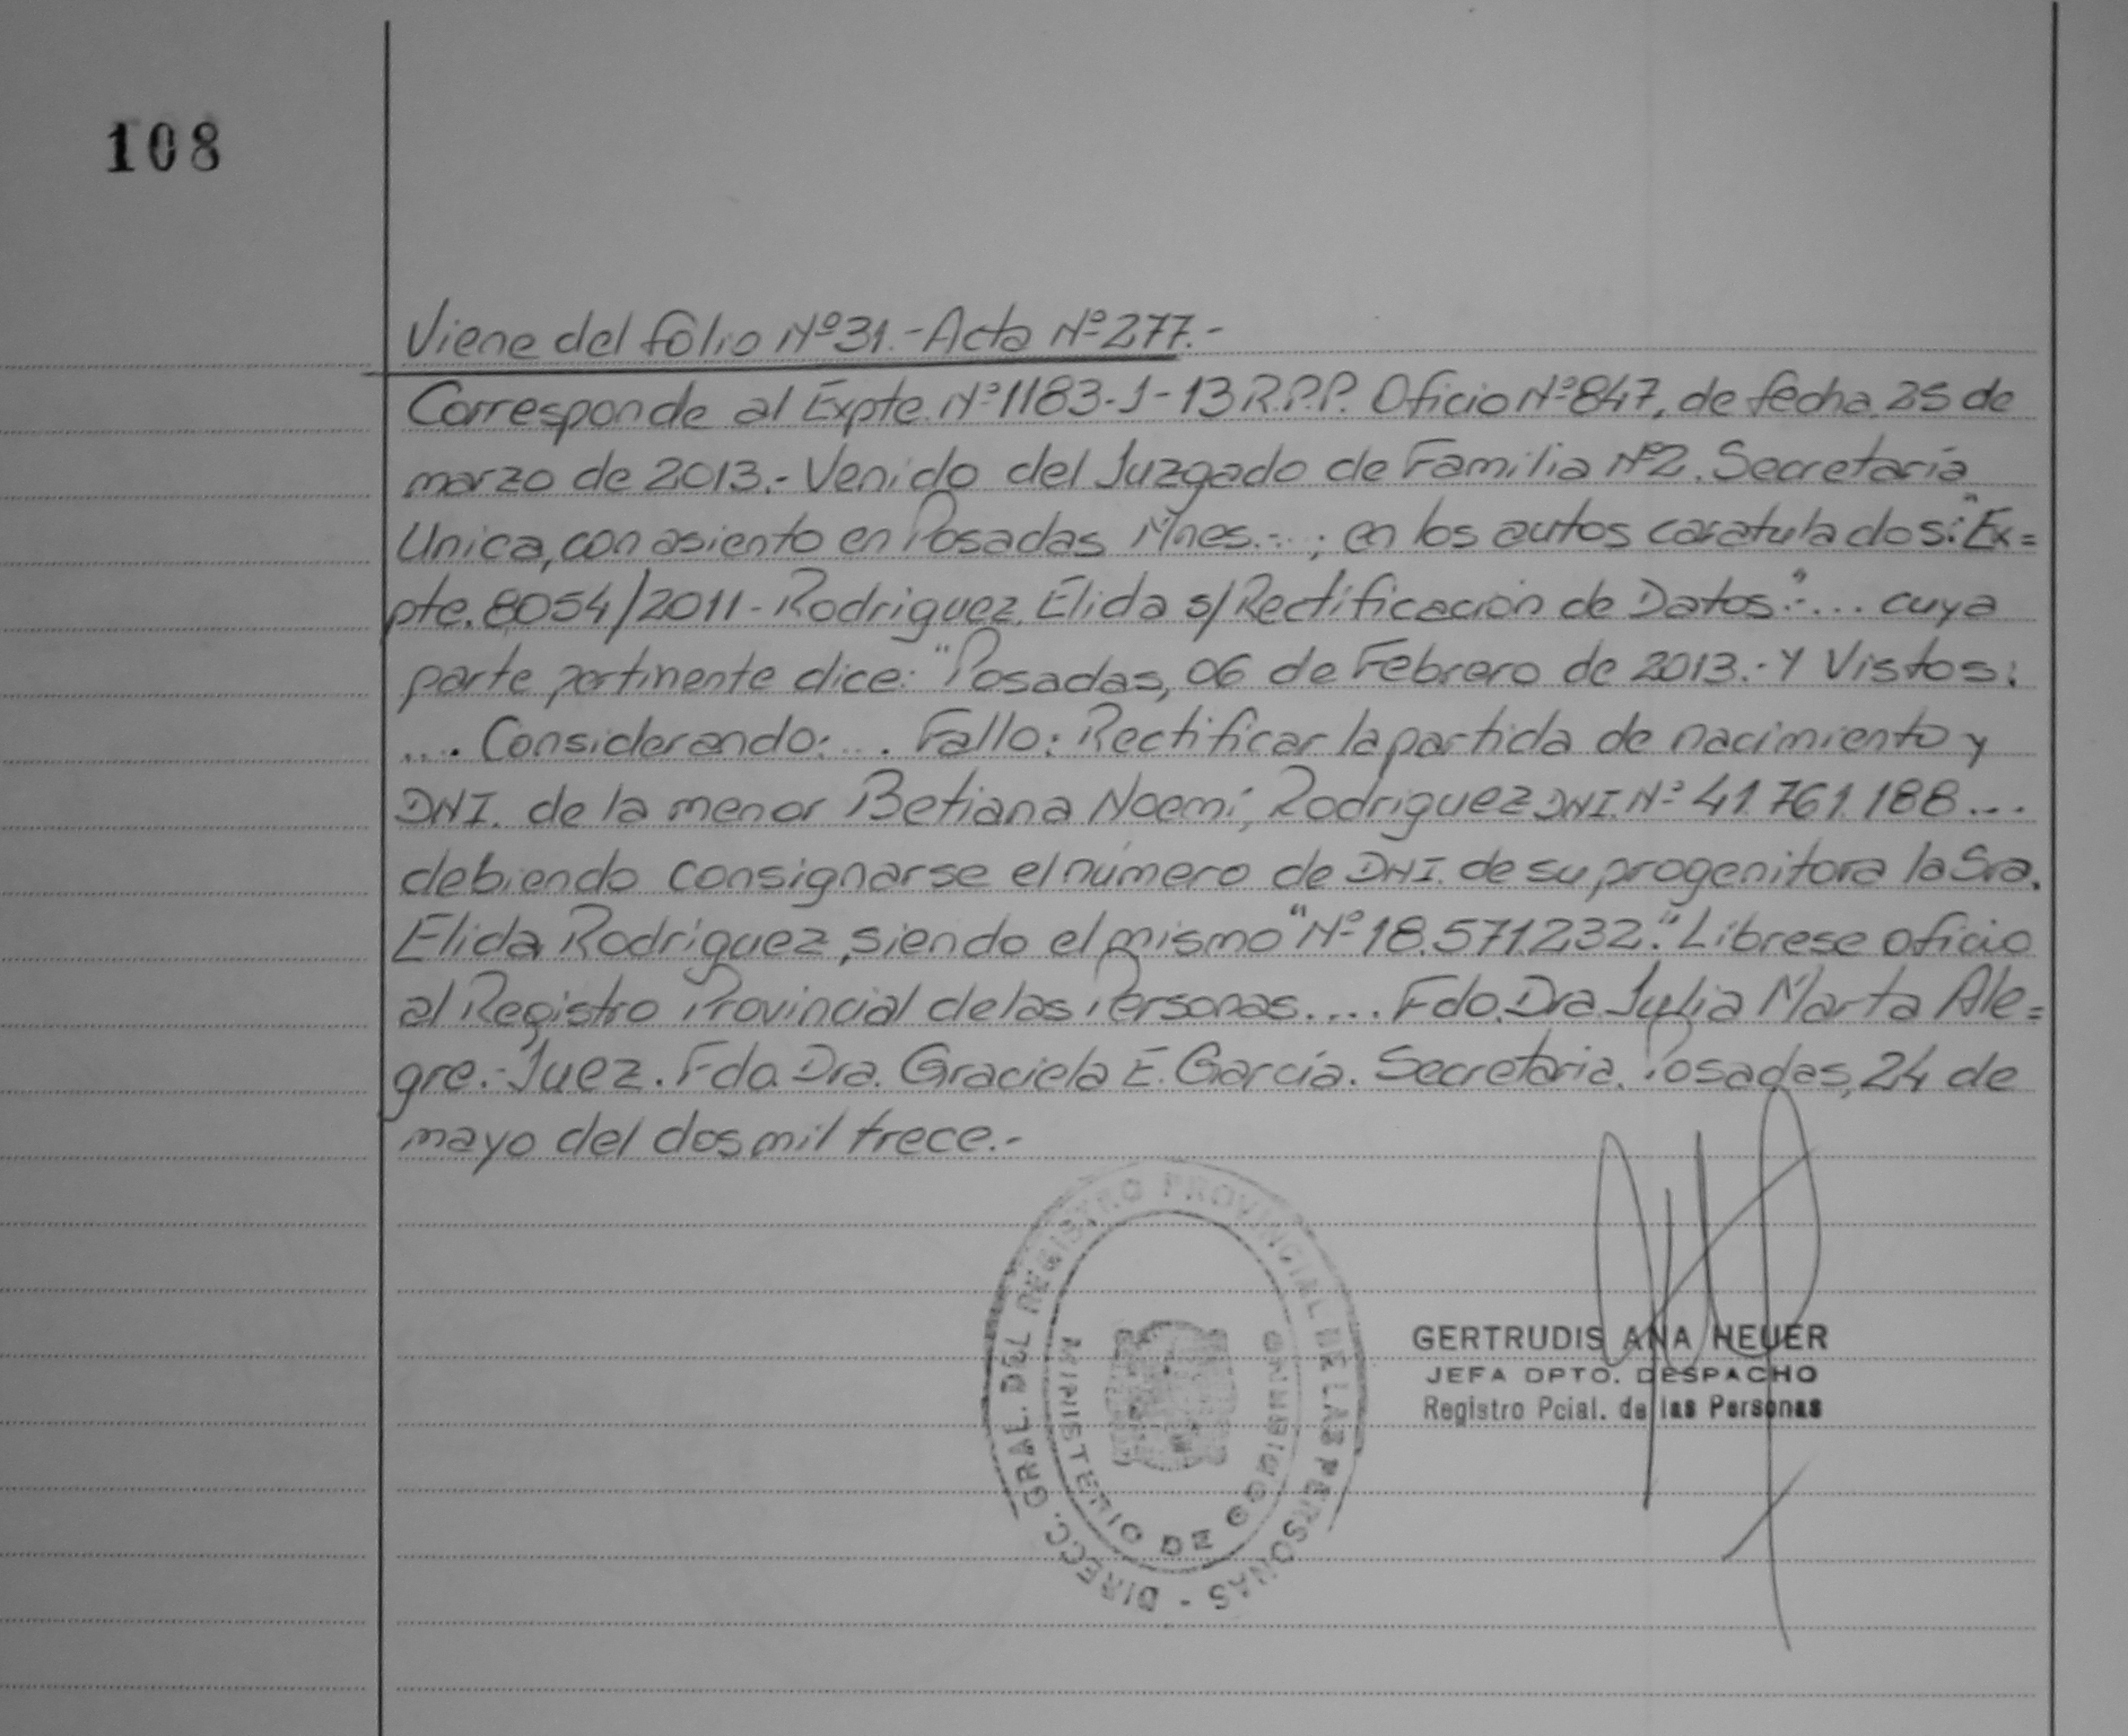 108
Viene del folio Nº31.-Acta Nº277.-
Corresponde al Expte.Nº1183-J-13 R.P.P. Oficio Nº847, de fecha 25 de
marzo de 2013.- Venido del Juzgado de Familia Nº2. Secretaría
Unica, con asiento en Posadas Mnes.-.; en los autos caratulados:"Ex=
pte.8054/2011-Rodriguez, Elida s/Rectificación de Datos".-... cuya
parte pertinente dice: "Posadas, 06 de Febrero de 2013.- Y Vistos:
.... Considerando:... Fallo: Rectificar la partida de nacimiento y
DNI. de la menor Betiana Noemí, Rodriguez DNI.Nº 41.761.188...
debiendo consignarse el número de DNI. de su progenitora la Sra.
Elida Rodriguez, siendo el mismo "Nº18.571.232." Librese oficio
al Registro Provincial de las Personas..... Fdo. Dra. Julia Marta Ale=
gre.- Juez. Fdo. Dra. Graciela E. García. Secretaria. Posadas, 24 de
mayo del dos mil trece.-
DIRECC. GRAL. DEL REGISTRO PROVINCIAL DE LAS PERSONAS -
MINISTERIO DE GOBIERNO
GERTRUDIS ANA HEUER
JEFA DPTO. DESPACHO
Registro Pcial. de las Personas